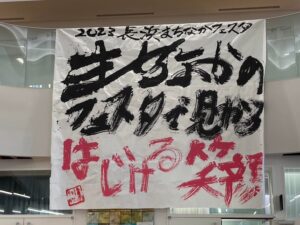 2023 長浜まちなかフェスタ
まちなかの
フェスタで見つかる
はじける笑顔